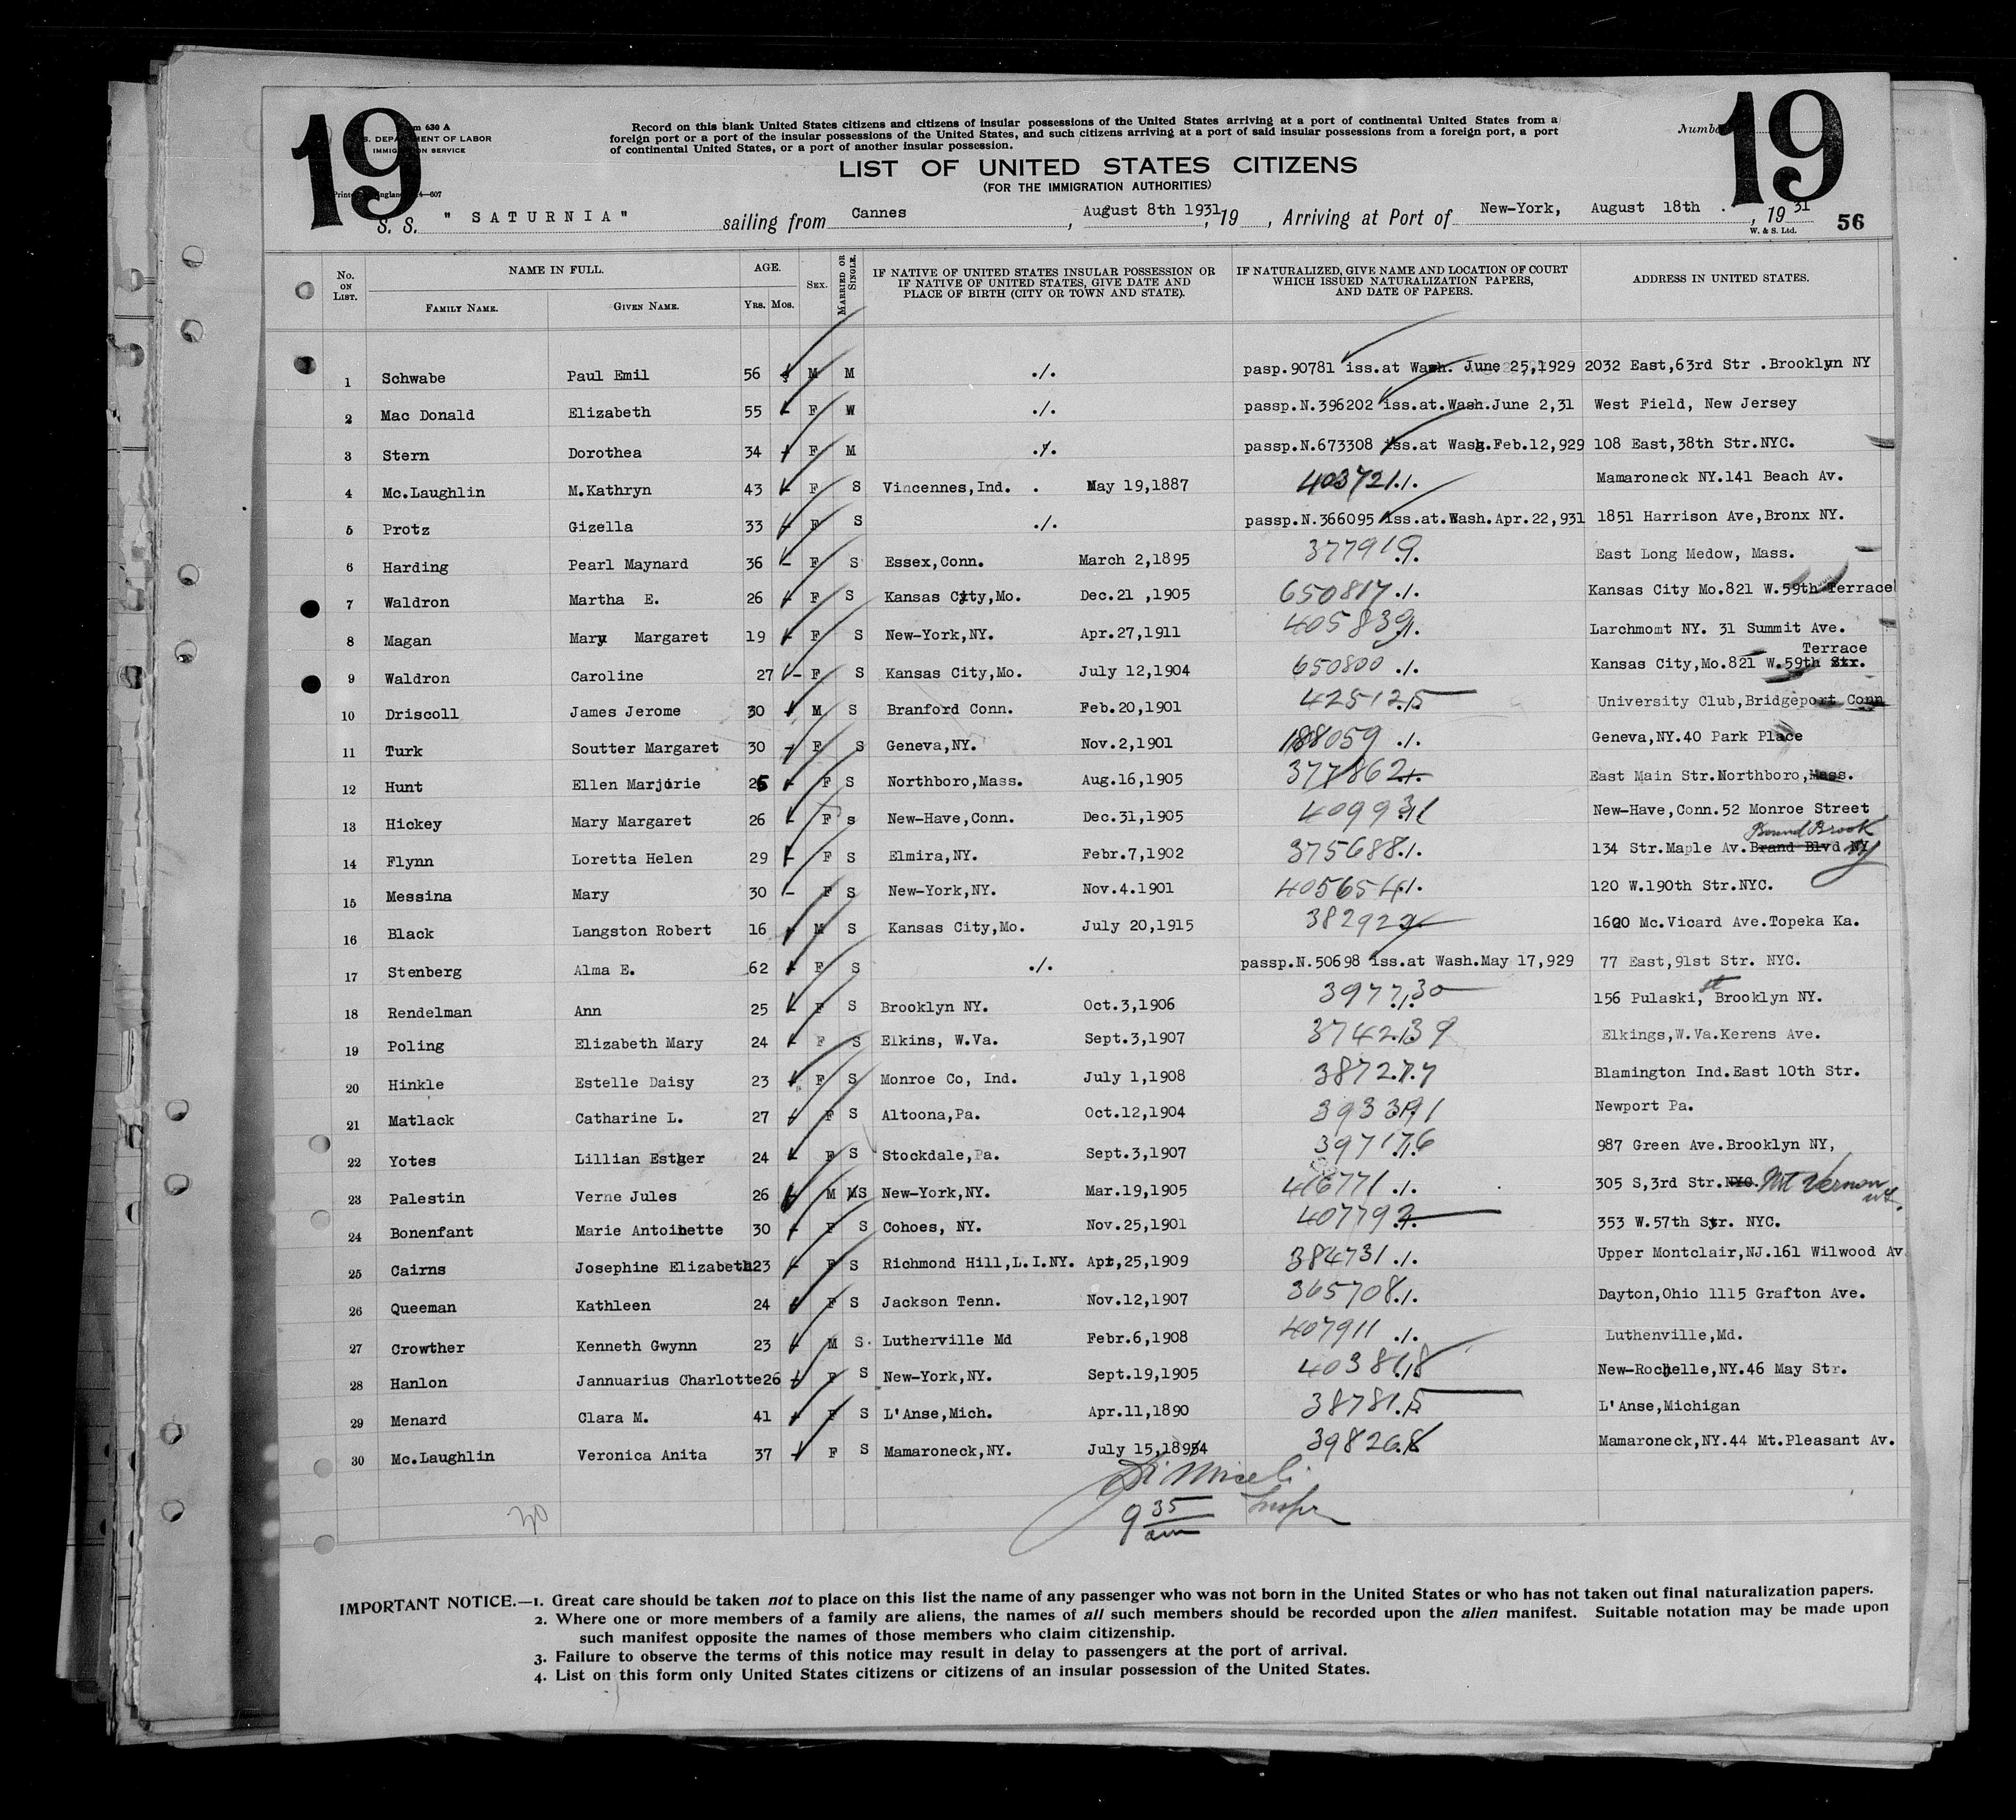 19
Form 630 A
U.S. DEPARTMENT OF LABOR
IMMIGRATION SERVICE
Record on this blank United States citizens and citizens of insular possessions of the United States arriving at a port of continental United States from a
foreign port or a port of the insular possessions of the United States, and such citizens arriving at a port of said insular possessions from a foreign port, a port
of continental United States, or a port of another insular possession.
Number
19
LIST OF UNITED STATES CITIZENS
(FOR THE IMMIGRATION AUTHORITIES)
S. S. " SATURNIA " sailing from Cannes, August 8th 1931, 19 , Arriving at Port of New-York, August 18th . , 19 31
W. & S. Ltd.
56
No. ON LIST. NAME IN FULL. AGE. SEX. MARRIED OR SINGLE. IF NATIVE OF UNITED STATES INSULAR POSSESSION OR IF NATIVE OF UNITED STATES, GIVE DATE AND PLACE OF BIRTH (CITY OR TOWN AND STATE). IF NATURALIZED, GIVE NAME AND LOCATION OF COURT WHICH ISSUED NATURALIZATION PAPERS, AND DATE OF PAPERS. ADDRESS IN UNITED STATES.
FAMILY NAME. GIVEN NAME. YRS. MOS.
1 Schwabe Paul Emil 56 M M ./. pasp.90781 iss.at Wash. June 25,1929 2032 East,63rd Str .Brooklyn NY
2 Mac Donald Elizabeth 55 - F W ./. passp.N.396202 iss.at.Wash.June 2,31 West Field, New Jersey
3 Stern Dorothea 34 - F M ./. passp.N.673308 iss.at Wash.Feb.12,929 108 East,38th Str.NYC.
4 Mc.Laughlin M.Kathryn 43 - F S Vincennes,Ind. . May 19,1887 403721 ./. Mamaroneck NY.141 Beach Av.
5 Protz Gizella 33 - F S ./. passp.N.366095 iss.at.Wash.Apr.22,931 1851 Harrison Ave,Bronx NY.
6 Harding Pearl Maynard 36 - F S Essex,Conn. March 2,1895 377919 East Long Medow, Mass.
7 Waldron Martha E. 26 - F S Kansas City,Mo. Dec.21 ,1905 650817 ./. Kansas City Mo.821 W.59th Terrace
8 Magan Mary Margaret 19 - F S New-York,NY. Apr.27,1911 405839 ./. Larchmomt NY. 31 Summit Ave.
Terrace
9 Waldron Caroline 27 - F S Kansas City,Mo. July 12,1904 650800 ./. Kansas City,Mo.821 W.59th Str.
10 Driscoll James Jerome 30 - M S Branford Conn. Feb.20,1901 425125 University Club,Bridgeport Conn
11 Turk Soutter Margaret 30 - F S Geneva,NY. Nov.2,1901 188059 ./. Geneva,NY.40 Park Place
12 Hunt Ellen Marjorie 25 - F S Northboro,Mass. Aug.16,1905 377862 ./. East Main Str.Northboro,Mass.
13 Hickey Mary Margaret 26 - F S New-Have,Conn. Dec.31,1905 409931 New-Have,Conn.52 Monroe Street
Bound Brook
14 Flynn Loretta Helen 29 - F S Elmira,NY. Febr.7,1902 375688 ./. 134 Str.Maple Av.Brand Blvd NY NJ
15 Messina Mary 30 - F S New-York,NY. Nov.4.1901 405654 ./. 120 W.190th Str.NYC.
16 Black Langston Robert 16 - M S Kansas City,Mo. July 20,1915 382922 1600 Mc.Vicard Ave.Topeka Ka.
17 Stenberg Alma E. 62 - F S ./. passp.N.50698 iss.at Wash.May 17,929 77 East,91st Str. NYC.
18 Rendelman Ann 25 - F S Brooklyn NY. Oct.3,1906 397730 156 Pulaski, st Brooklyn NY.
19 Poling Elizabeth Mary 24 - F S Elkins, W.Va. Sept.3,1907 374239 Elkings,W.Va.Kerens Ave.
20 Hinkle Estelle Daisy 23 - F S Monroe Co, Ind. July 1,1908 387277 Blamington Ind.East 10th Str.
21 Matlack Catharine L. 27 - F S Altoona,Pa. Oct.12,1904 393391 Newport Pa.
22 Yotes Lillian Esther 24 - F S Stockdale,Pa. Sept.3,1907 397176 987 Green Ave.Brooklyn NY,
23 Palestin Verne Jules 26 - M MS New-York,NY. Mar.19,1905 416771 ./. 305 S,3rd Str.NYC. Mt Vernon NY.
24 Bonenfant Marie Antoinette 30 - F S Cohoes, NY. Nov.25,1901 407792 353 W.57th Str. NYC.
25 Cairns Josephine Elizabeth 23 - F S Richmond Hill,L.I.NY. Apr,25,1909 384731 ./. Upper Montclair,NJ.161 Wilwood Av.
26 Queeman Kathleen 24 - F S Jackson Tenn. Nov.12,1907 365708 ./. Dayton,Ohio 1115 Grafton Ave.
27 Crowther Kenneth Gwynn 23 - M S. Lutherville Md Febr.6,1908 407911 ./. Luthenville,Md.
28 Hanlon Jannuarius Charlotte 26 - F S New-York,NY. Sept.19,1905 403818 New-Rochelle,NY.46 May Str.
29 Menard Clara M. 41 - F S L'Anse,Mich. Apr.11,1890 387815 L'Anse,Michigan
30 Mc.Laughlin Veronica Anita 37 - F S Mamaroneck,NY. July 15,1894 398268 Mamaroneck,NY.44 Mt.Pleasant Av.
Di Miceli
30 9 35 am Inspr
IMPORTANT NOTICE.—1. Great care should be taken not to place on this list the name of any passenger who was not born in the United States or who has not taken out final naturalization papers.
2. Where one or more members of a family are aliens, the names of all such members should be recorded upon the alien manifest. Suitable notation may be made upon
such manifest opposite the names of those members who claim citizenship.
3. Failure to observe the terms of this notice may result in delay to passengers at the port of arrival.
4. List on this form only United States citizens or citizens of an insular possession of the United States.